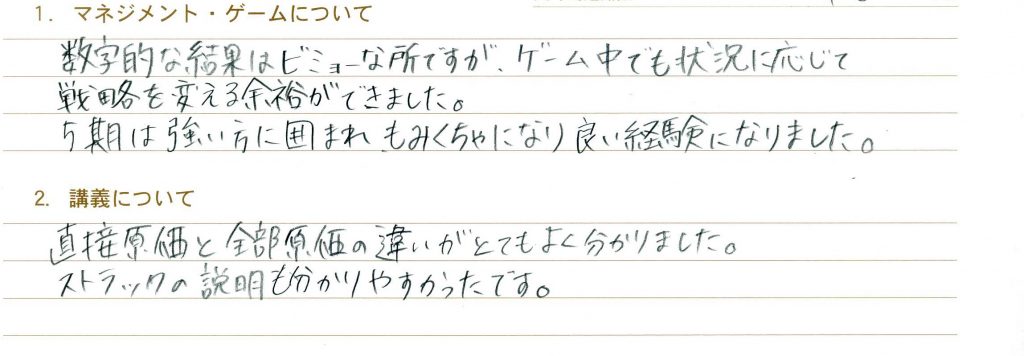 1. マネジメント・ゲームについて
数字的な結果はビミョーな所ですが、ゲーム中でも状況に応じて
戦略を変える余裕ができました。
5期は強い方に囲まれ、もみくちゃになり良い経験になりました。
2. 講義について
直接原価と全部原価の違いがとてもよく分かりました。
ストラックの説明も分かりやすかったです。